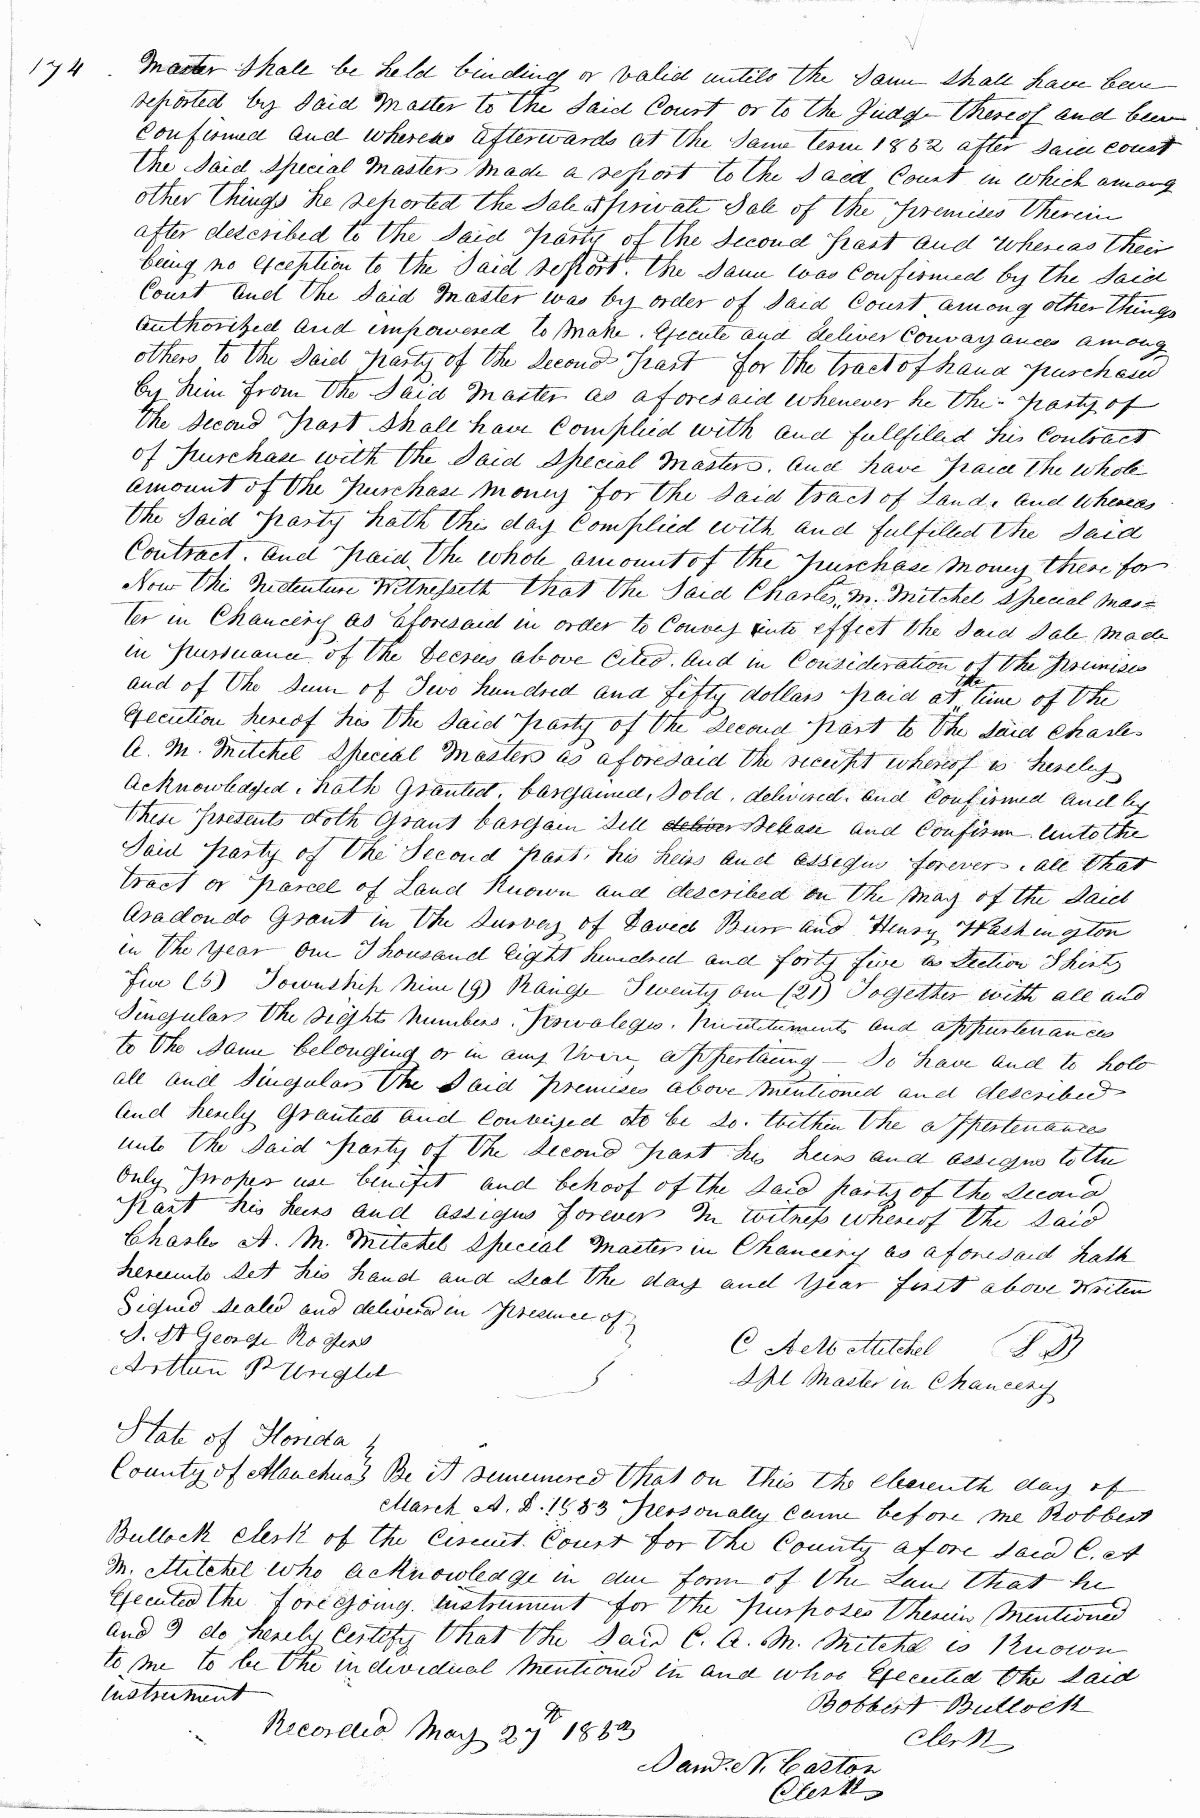 174 . Master shall be held binding or valid untill the same shall have been
reported by said Master to the said Court or to the Judge thereof and been
confirmed and whereas afterwards at the same term 1852 after said court
the said special Master made a report to the said Court in which among
other things he reported the Sale at private Sale of the premises therein
after described to the said party of the second part and whereas their
being no exception to the said report. the same was confirmed by the said
Court and the said Master was by order of said Court among other things
authorized and impowered to make . Execute and deliver conveyances among
others to the said party of the second part for the tract of hand purchased
by him from the said Master as aforesaid whenever he the party of
the second part shall have complied with and fullfilled his contract
of purchase with the said special Master. and have paid the whole
amount of the purchase money for the said tract of Land. and whereas
the said party hath this day complied with and fulfilled the said
Contract. and paid the whole amount of the purchase money there for
Now this Indenture Witnesseth that the said Charles, M. Mitchel special Mas=
ter in Chancery as aforesaid in order to convey into effect the said sale made
in pursuance of the Decrees above cited. and in consideration of the premises
and of the sum of Two hundred and fifty dollars paid at the time of the
Execution hereof his the said party of the second part to the said Charles
A. M. Mitchel special Master as aforesaid the receipt whereof is hereby
acknowledged, hath granted, bargained, sold, delivered, and confirmed and by
these presents doth grant bargain sell deliver release and confirm unto the
said party of the second part, his heirs and assigns forever, all that
tract or parcel of Land known and described on the map of the said
Aradondo Grant in the survey of David Burr and Henry Washington
in the year one Thousand Eight hundred and forty five as Section Thirty
five (5) Township Nine (9) Range Twenty one (21) Together with all and
Singular the rights numbers. Privaleges. and appurtenances
to the same belonging or in any appertaing — So have and to hold
all and singular the said premises above mentioned and described
and hereby granted and conveyed to be so. within the appertenances
unto the said party of the second part his heirs and assigns to the
only proper use benifit and behoof of the said party of the second
part his heirs and assigns forever In witness whereof the said
Charles A. M. Mitchel special Master in Chancery as aforesaid hath
hereunto set his hand and seal the day and year first above written
Signed sealed and delivered in presence of
S. St George Rogers
C A M Mitchel
Arthur P Wright
Spl Master in Chancery
State of Florida
County of Alauchua Be it rememered that on this the eleventh day of
March A. D. 1853 Personally came before me Robbert
Bullock clerk of the Circuit Court for the County afore said C. A
M. Mitchel who acknowledge in due form of the Law that he
Executed the foregoing instrument for the purposes therein mentioned
and I do hereby certify that the said C. A. M. Mitchel is known
to me to be the individual mentioned in and whoe Executed the said
instrument
Bobbert Bullock
Recorded May 27th 1853
Clerk
Saml. N. Caston
Clerk